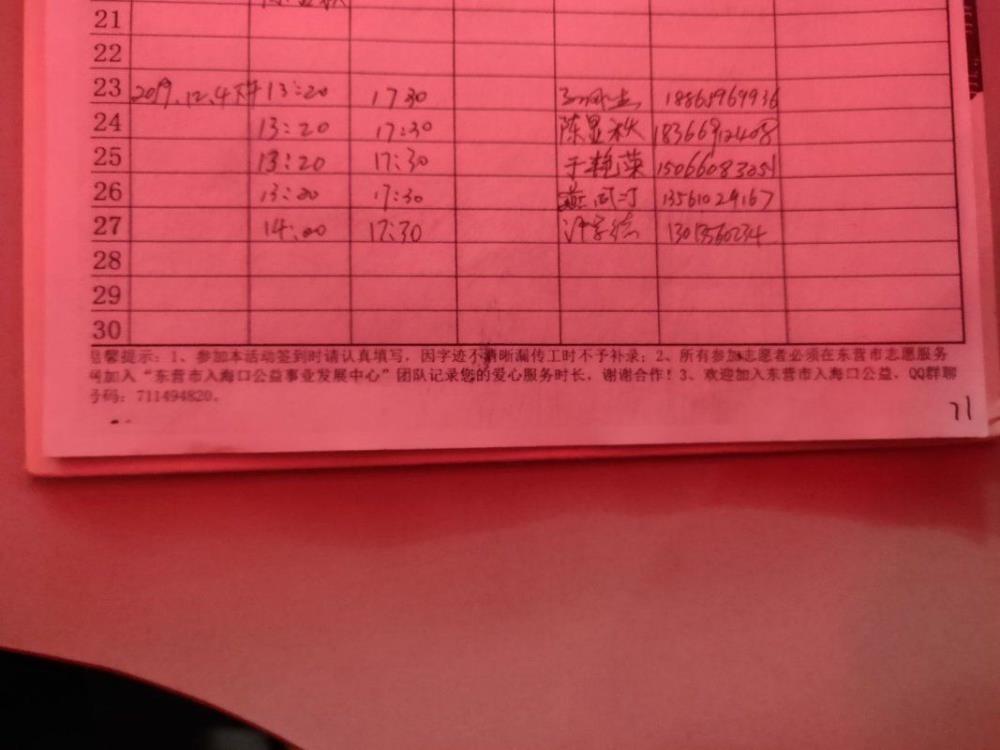 21
22
23 2019.12.4 13:20 1730 18865969936
24 13:20 17:30 陈显秋 18366912408
25 13:20 17:30 于艳荣 15066083051
26 13:20 17:30 13561029167
27 14:00 17:30
28
29
30
温馨提示：1、参加本活动签到时请认真填写，因字迹不清晰漏传工时不予补录；2、所有参加志愿者必须在东营市志愿服务
网加入“东营市入海口公益事业发展中心”团队记录您的爱心服务时长，谢谢合作！3、欢迎加入东营市入海口公益，QQ群聊
号码：711494820。
71